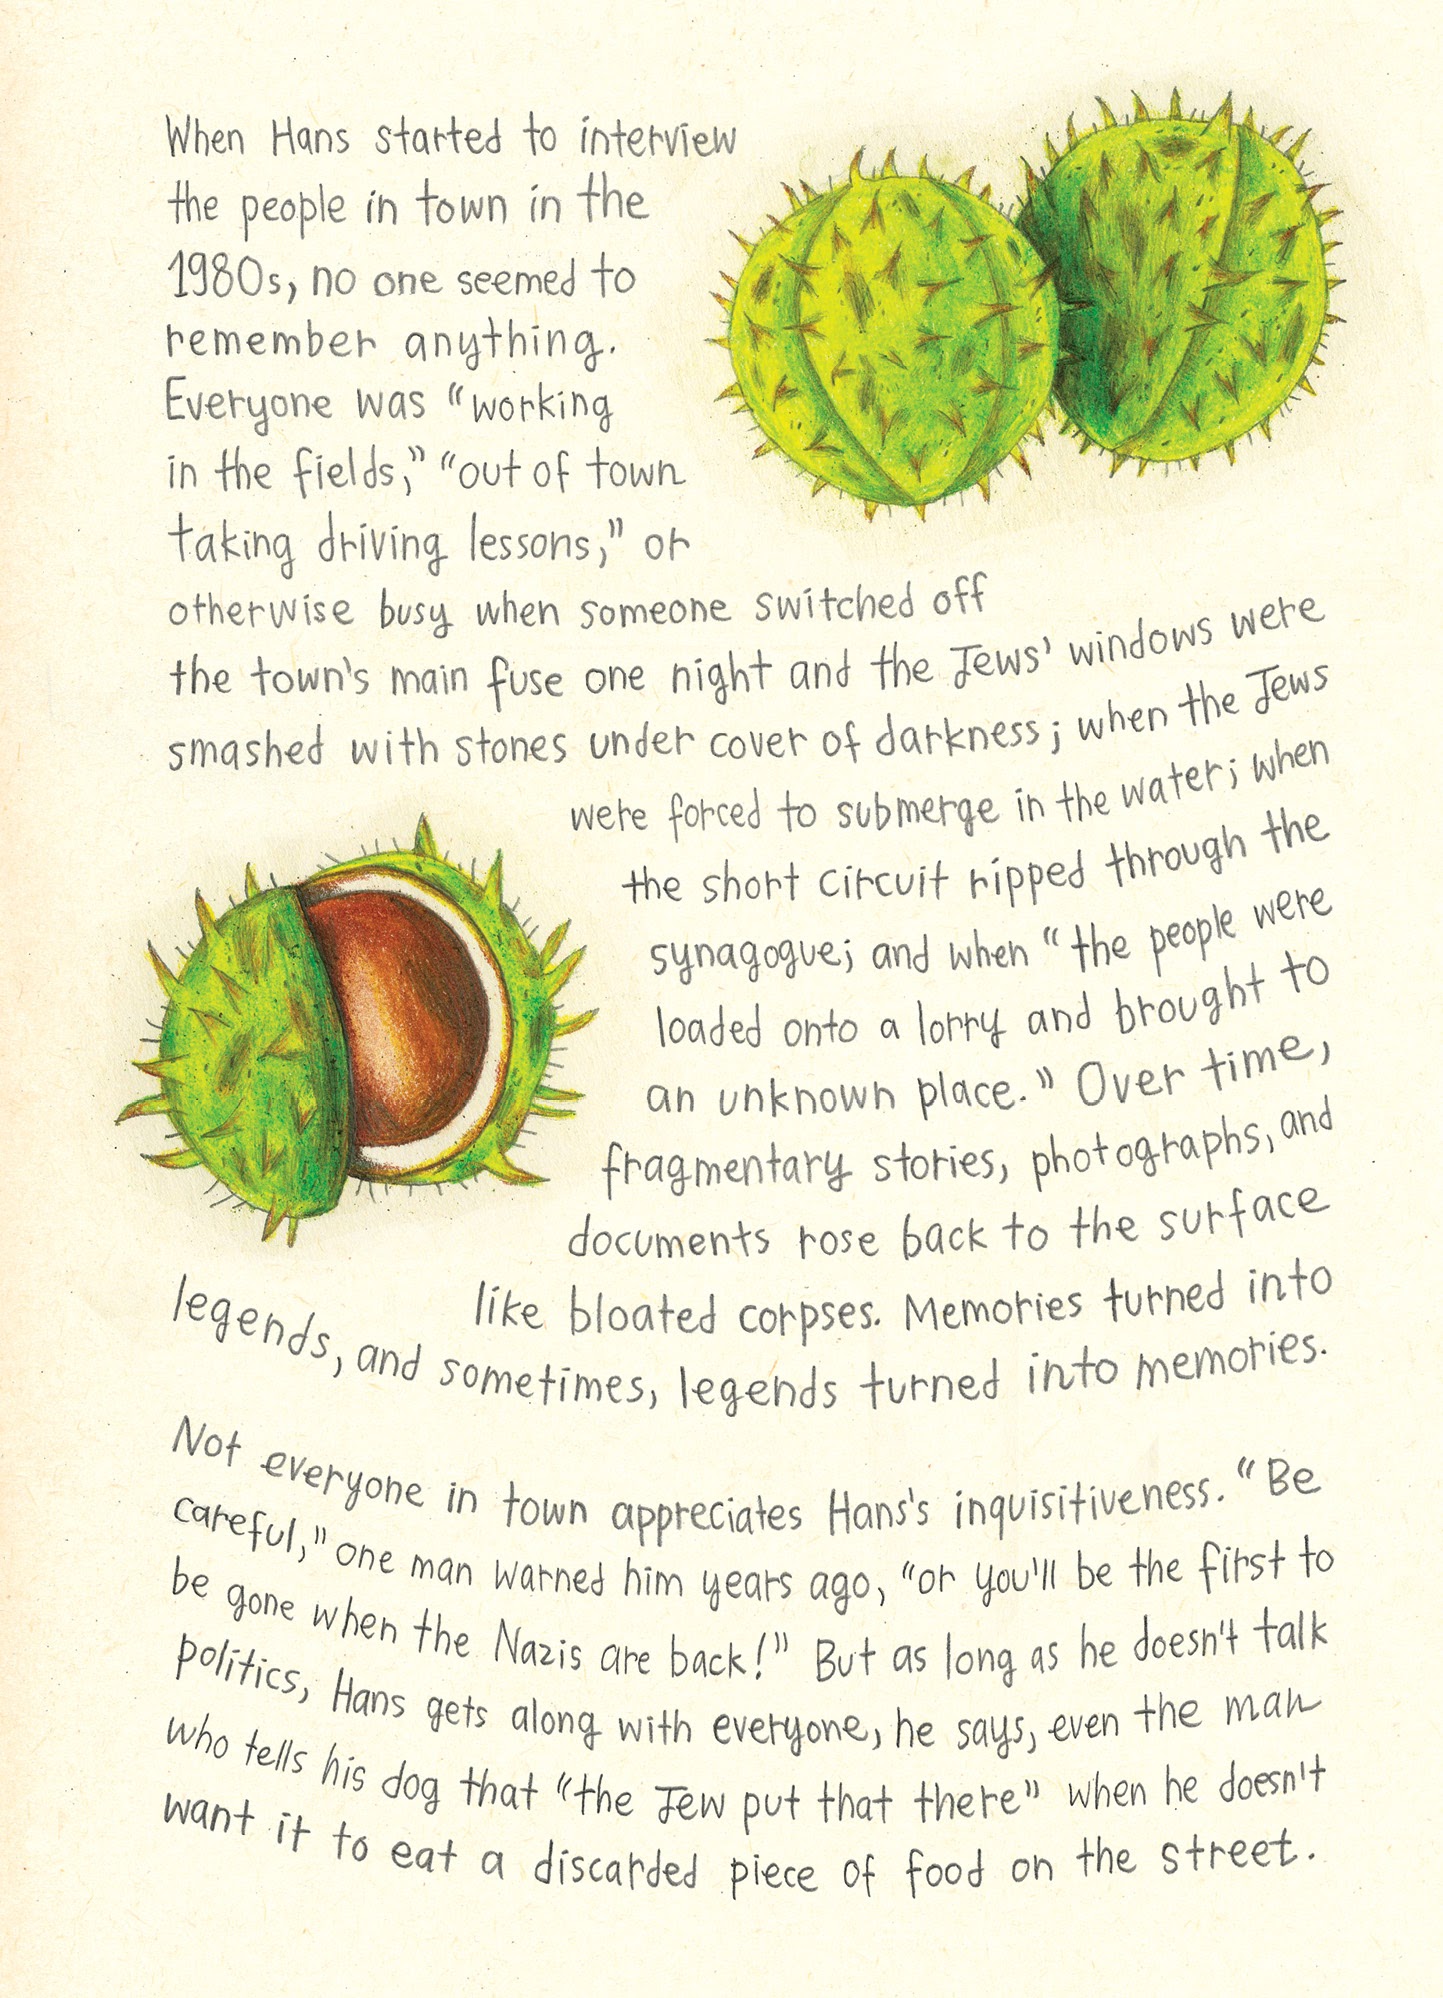 When Hans started to interview
the people in town in the
1980s, no one seemed to
remember anything.
Everyone was “working
in the fields,” “out of town
taking driving lessons,” or
otherwise busy when someone switched off
the town's main fuse one night and the Jews' windows were
smashed with stones under cover of darkness; when the Jews
were forced to submerge in the water; when
the short circuit ripped through the
synagogue; and when “the people were
loaded onto a lorry and brought to
an unknown place.” Over time,
fragmentary stories, photographs, and
documents rose back to the surface
like bloated corpses. Memories turned into
legends, and sometimes, legends turned into memories.
Not everyone in town appreciates Hans's inquisitiveness. “Be
careful,” one man warned him years ago, “or you'll be the first to
be gone when the Nazis are back!” But as long as he doesn't talk
politics, Hans gets along with everyone, he says, even the man
who tells his dog that “the Jew put that there” when he doesn't
want it to eat a discarded piece of food on the street.